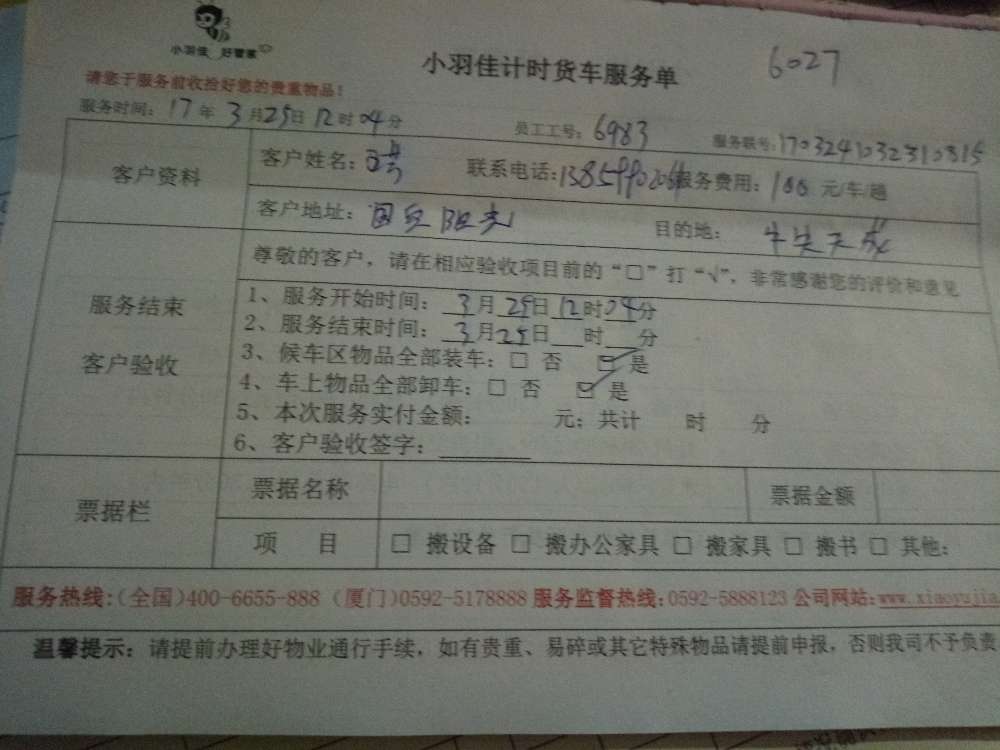 小羽佳 好管家
小羽佳计时货车服务单
6027
请您于服务前收拾好您的贵重物品！
服务时间：17年3月25日12时04分 员工工号：6983 服务联号：1703241032310815
客户资料
客户姓名： 联系电话： 服务费用：100元/车/趟
客户地址： 阳光 目的地：
服务结束
客户验收
尊敬的客户，请在相应验收项目前的“□”打“√”，非常感谢您的评价和意见
1、服务开始时间：3月25日12时04分
2、服务结束时间：3月25日 时 分
3、候车区物品全部装车：□ 否 ☑ 是
4、车上物品全部卸车：□ 否 ☑ 是
5、本次服务实付金额： 元；共计 时 分
6、客户验收签字：
票据栏
票据名称 票据金额
项 目 □ 搬设备 □ 搬办公家具 □ 搬家具 □ 搬书 □ 其他：
服务热线：（全国）400-6655-888（厦门）0592-5178888 服务监督热线：0592-5888123 公司网站：www.xiaoyujia
温馨提示：请提前办理好物业通行手续，如有贵重、易碎或其它特殊物品请提前申报，否则我司不予负责